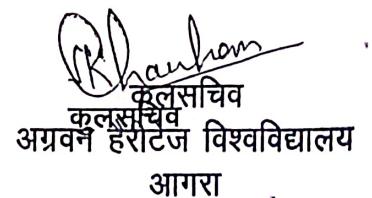 कुलसचिव
कुलसचिव
अग्रवन हैरीटेज विश्वविद्यालय
आगरा